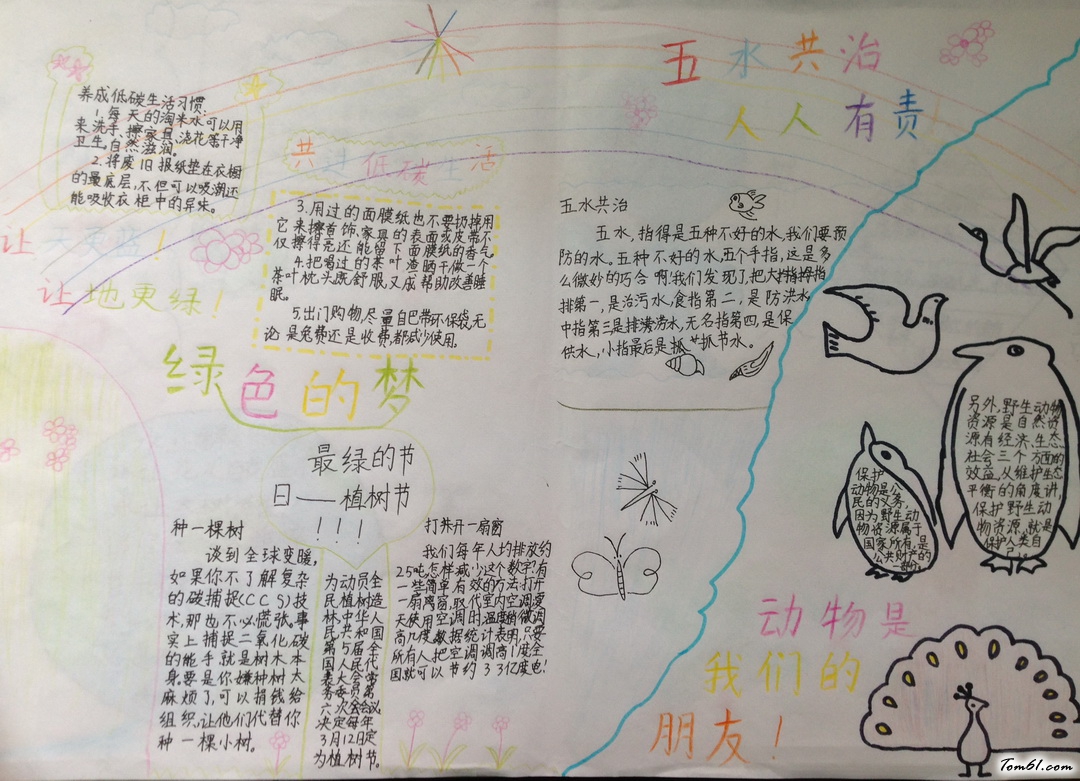 养成低碳生活习惯:
1.每天的淘米水可以用
来洗手、擦家具、浇花等干净
卫生,自然滋润。
2.将废旧报纸垫在衣橱
的最底层,不但可以吸潮还
能吸收衣柜中的异味。
让天更蓝!
让地更绿!
共进低碳生活
3.用过的面膜纸也不要扔掉用
它来擦首饰、家具的表面或皮带不
仅擦得亮还能留下面膜纸的香气。
4.把喝过的茶叶渣晒干做一个
茶叶枕头既舒服,又成帮助改善睡
眠。
5.出门购物,尽量自巴带环保袋,无
论是免费还是收费,都减少使用。
绿色的梦
最绿的节
日——植树节
!!!
种一棵树
谈到全球变暖,
如果你不了解复杂
的碳捕捉(CCS)技
术,那也不必慌张。事
实上捕捉二氧化碳
的能手就是树木本
身。要是你嫌种树太
麻烦了,可以捐钱给
组织,让他们代替你
种一棵小树。
为动员全
民植树造
林,中华人
民共和国
第5届全
国人民代
表大会常
务委员第
六次会会议
决定每年
3月12日定
为植树节。
打养开一扇窗
我们每年人均排放约
2.5吨,怎样减少这个数字?有
一些简单有效的方法:打开
一扇离窗,取代室内空调;夏
天使用空调时,温度稍微调
高几度,数据统计表明,只要
所有人把空调调高1度全
国就可以节约33亿度电!
五水共治
人人有责
五水共治
五水,指得是五种不好的水,我们要预
防的水。五种不好的水,五个手指,这是多
么微妙的巧合啊!我们发现了,把大拇指
排第一,是治污水,食指第二,是防洪水,
中指第三是排涝水,无名指第四,是保
供水,小指最后是抓节水。
保护
动物是公
民的义务,
因为野生动
物资源属于
国家所有,是
公共财产的
一部分。
另外,野生动物
资源是自然资
源有经济、生态、
社会三个方面的
效益,从维护生态
平衡的角度讲,
保护野生动
物资源,就是
保护人类自
己。
动物是
我们的
朋友!
Tom61.com